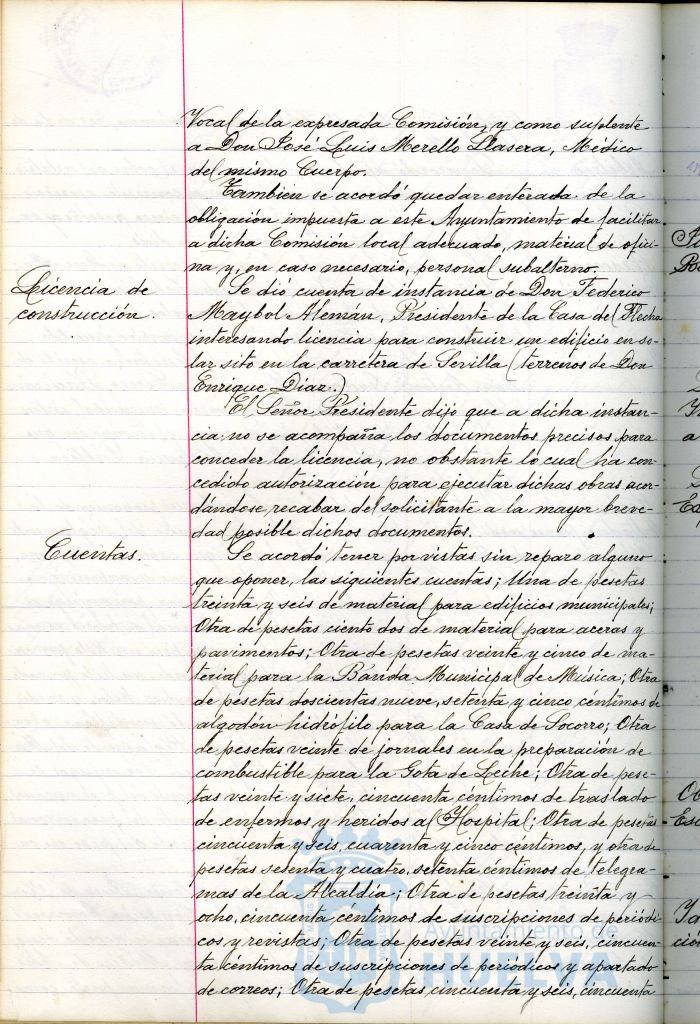 Vocal de la expresada Comisión, y como suplente
a Don José Luis Merello Llasera, Médico
del mismo Cuerpo.
También se acordó quedar enterada de la
obligación impuesta a este Ayuntamiento de facilitar
a dicha Comisión local adecuado, material de ofici-
na y, en caso necesario, personal subalterno.
Licencia de
construcción.
Se dió cuenta de instancia de Don Federico
Maybol Alemán, Presidente de la Casa del Flecha
interesando licencia para construir un edificio en so-
lar sito en la carretera de Sevilla (terrenos de Don
Enrique Díaz.)
El Señor Presidente dijo que a dicha instan-
cia no se acompaña los documentos precisos para
conceder la licencia, no obstante lo cual ha con-
cedido autorización para ejecutar dichas obras acor-
dándose recabar del solicitante a la mayor breve-
dad posible dichos documentos.
Cuentas.
Se acordó tener por vistas sin reparo alguno
que oponer, las siguientes cuentas; Una de pesetas
treinta y seis de material para edificios municipales;
Otra de pesetas ciento dos de material para aceras y
pavimentos; Otra de pesetas veinte y cinco de ma-
terial para la Banda Municipal de Música; Otra
de pesetas doscientas nueve, setenta y cinco céntimos de
algodón hidrófilo para la Casa de Socorro; Otra
de pesetas veinte de jornales en la preparación de
combustible para la Gota de Leche; Otra de pese-
tas veinte y siete, cincuenta céntimos de traslado
de enfermos y heridos al Hospital; Otra de pesetas
cincuenta y seis, cuarenta y cinco céntimos, y otra de
pesetas sesenta y cuatro, setenta céntimos de telegra-
mas de la Alcaldía; Otra de pesetas treinta y
ocho, cincuenta céntimos de suscripciones de periódi-
cos y revistas; Otra de pesetas veinte y seis, cincuen-
ta céntimos de suscripciones de periódicos y apartado
de correos; Otra de pesetas cincuenta y seis, cincuenta
Ayuntamiento de
HUELVA